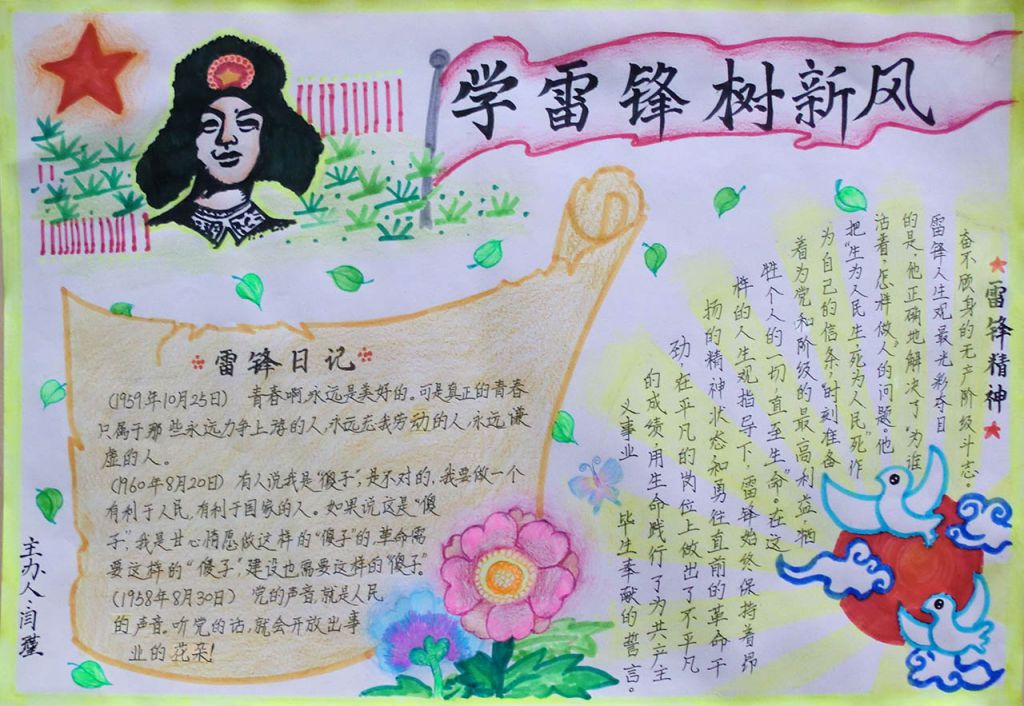 学雷锋树新风
雷锋日记
(1959年10月25日) 青春啊,永远是美好的。可是真正的青春
只属于那些永远力争上游的人,永远忘我劳动的人,永远谦
虚的人。
(1960年8月20日) 有人说我是“傻子”,是不对的,我要做一个
有利于人民,有利于国家的人。如果说这是“傻
子”,我是甘心情愿做这样的“傻子”的,革命需
要这样的“傻子”,建设也需要这样的“傻子”。
(1958年8月30日) 党的声音,就是人民
的声音。听党的话,就会开放出事
业的花朵!
雷锋精神
奋不顾身的无产阶级斗志。
雷锋人生观最光彩夺目
的是,他正确地解决了“为谁
活着,怎样做人的问题。他
把“生为人民生,死为人民死”作
为自己的信条,时刻准备
着为党和阶级的最高利益牺
牲个人的一切,直至生命。在这
样的人生观指导下,雷锋始终保持着昂
扬的精神状态和勇往直前的革命干
劲,在平凡的岗位上做出了不平凡
的成绩,用生命践行了为共产主
义事业 毕生奉献的誓言。
主办人:闫瑾